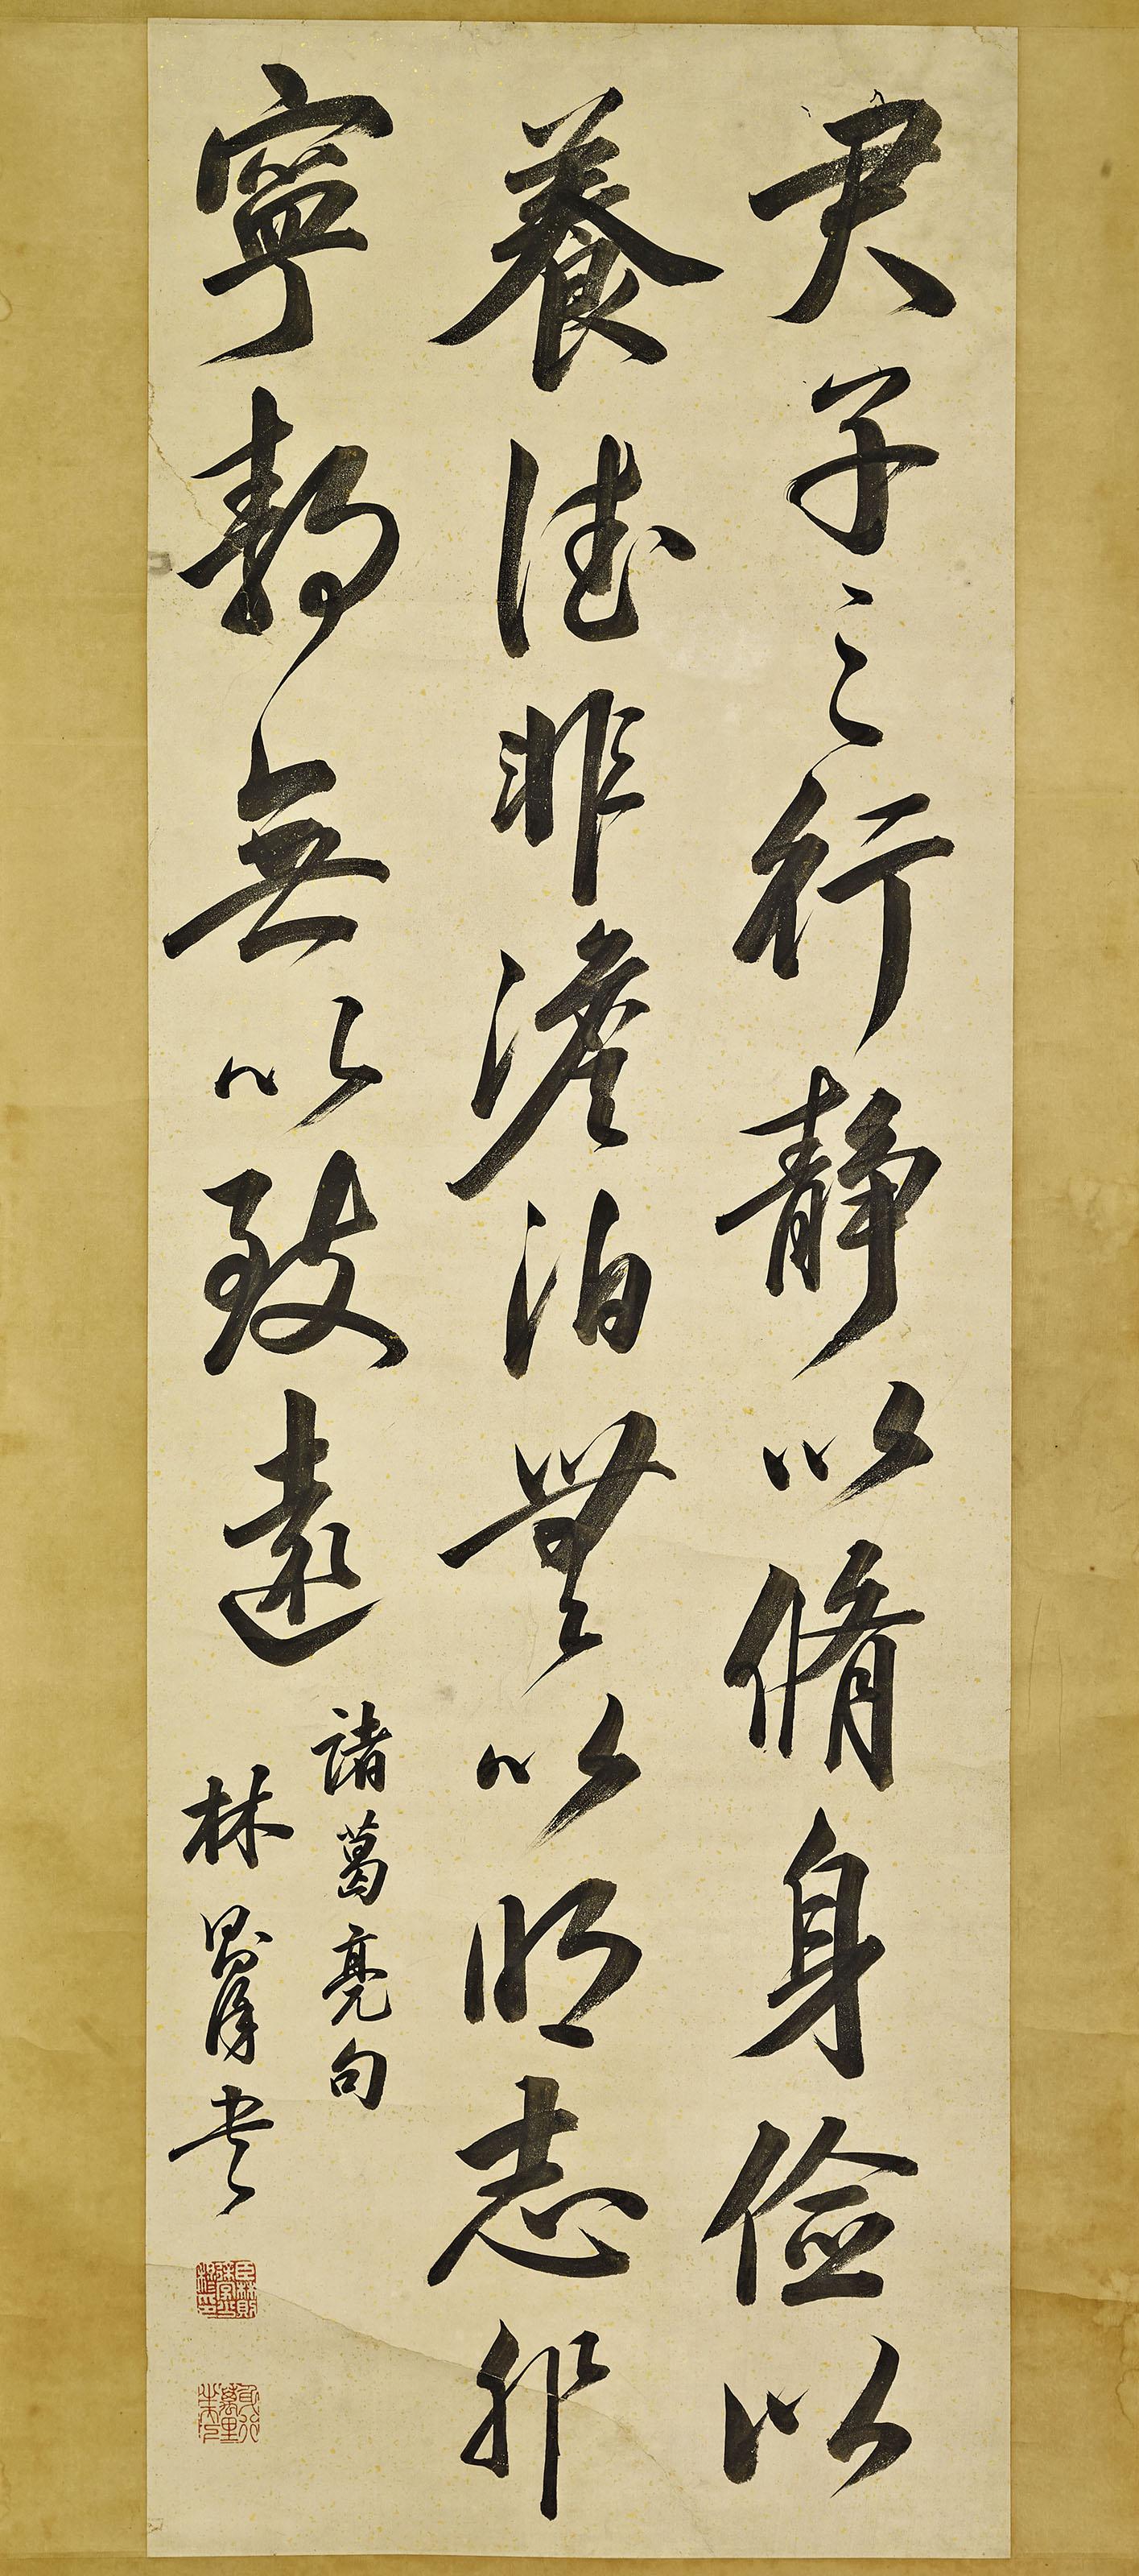 君子之行靜以脩身儉以
養德非澹泊無以明志非
寧靜無以致遠
諸葛亮句
林則徐書